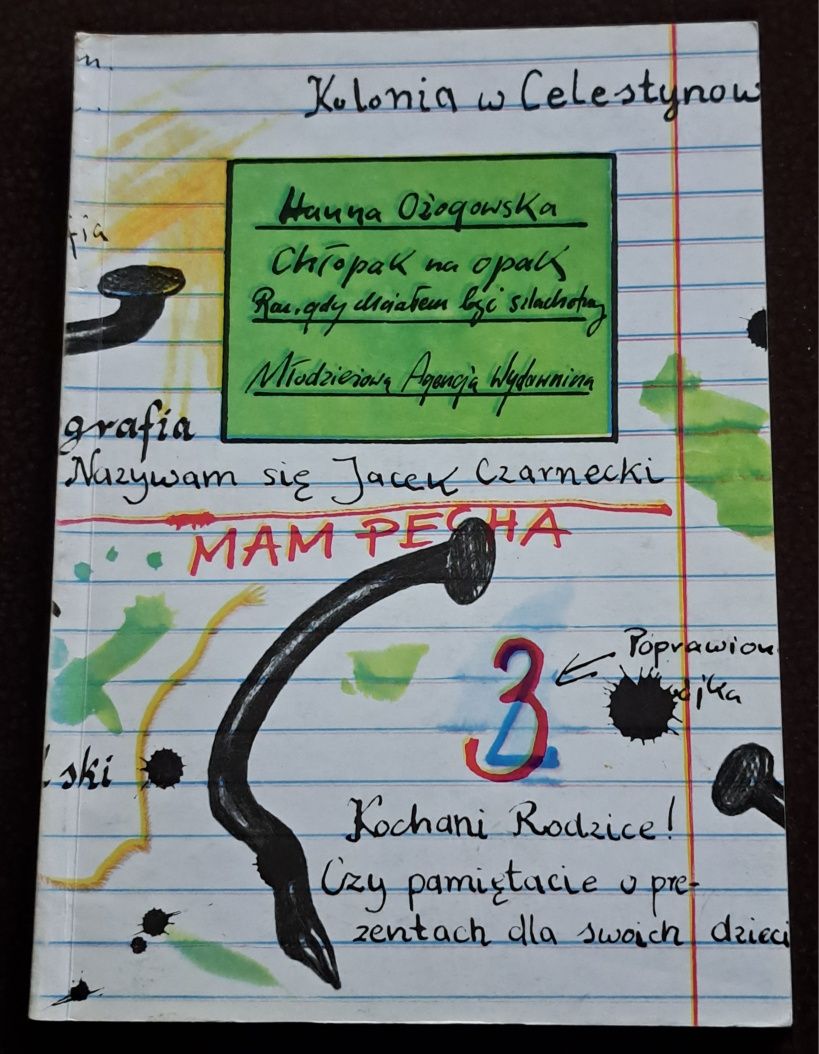 n.
Kolonia w Celestynow
fia
Hanna Ożogowska
Chłopak na opak
Raz, gdy chciałem być szlachetny
Młodzieżowa Agencja Wydawnicza
grafia
Nazywam się Jacek Czarnecki
MAM PECHA
3
Poprawion
ójka
ski
Kochani Rodzice!
Czy pamiętacie o pre-
zentach dla swoich dzieci